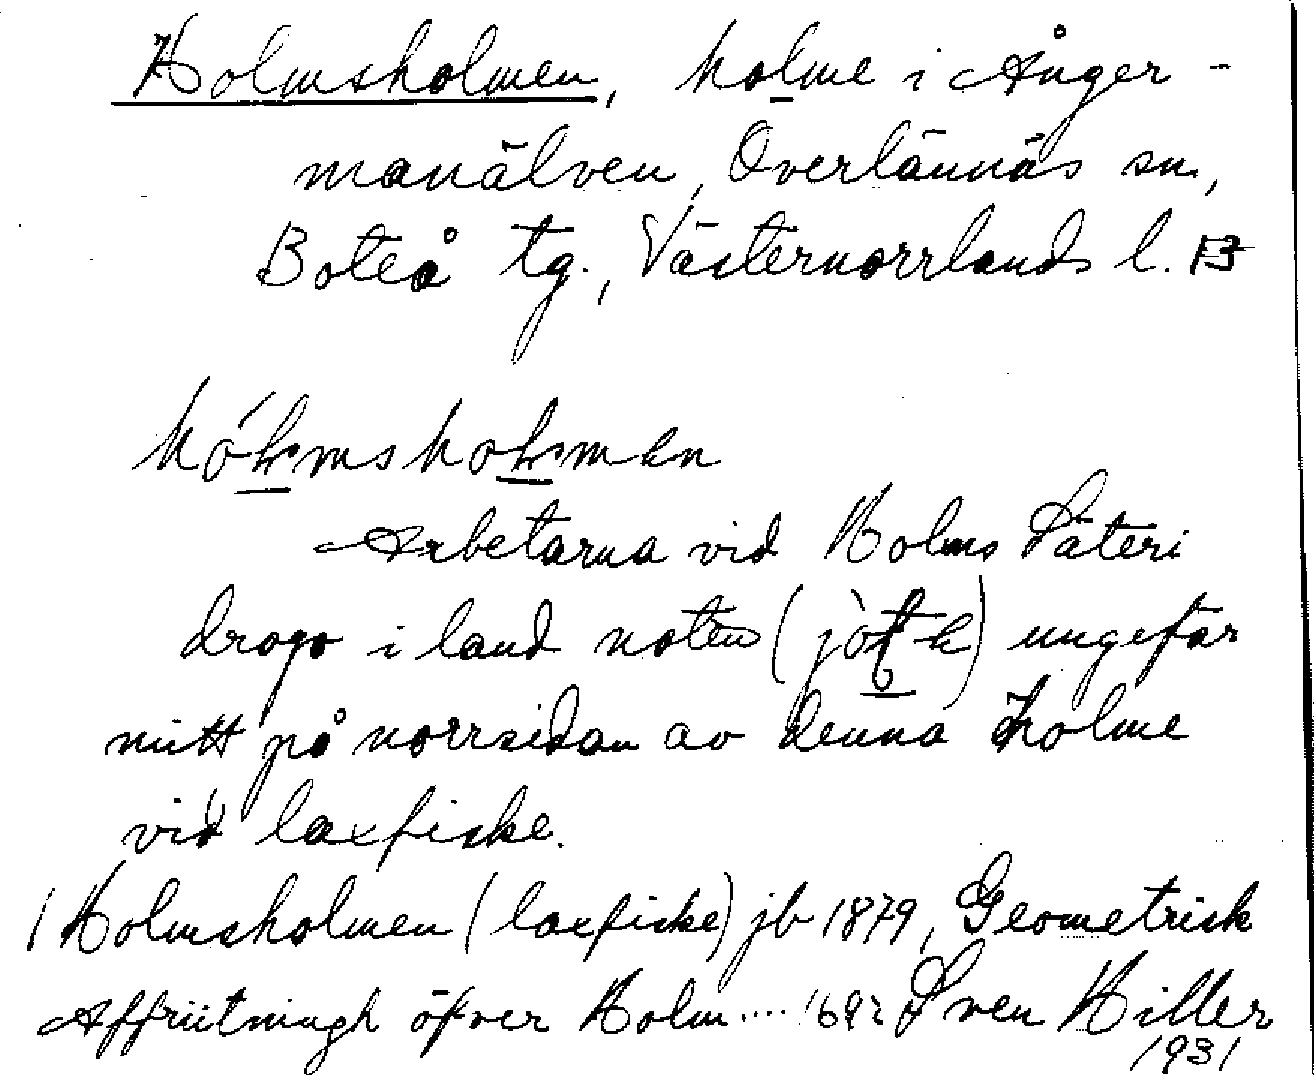 Holmsholmen, holme i Ånger-
manälven, Överlännäs sn,
Boteå tg., Västernorrlands l.
Arbetarna vid Holms Säteri
drogo i land noten ungefär
mitt på norrsidan av denna holme
vid laxfiske.
Holmsholmen (laxfiske) jb 1879, Geometrisk
Affriitningh öfver Holm.... 1692 Sven Hiller
1931